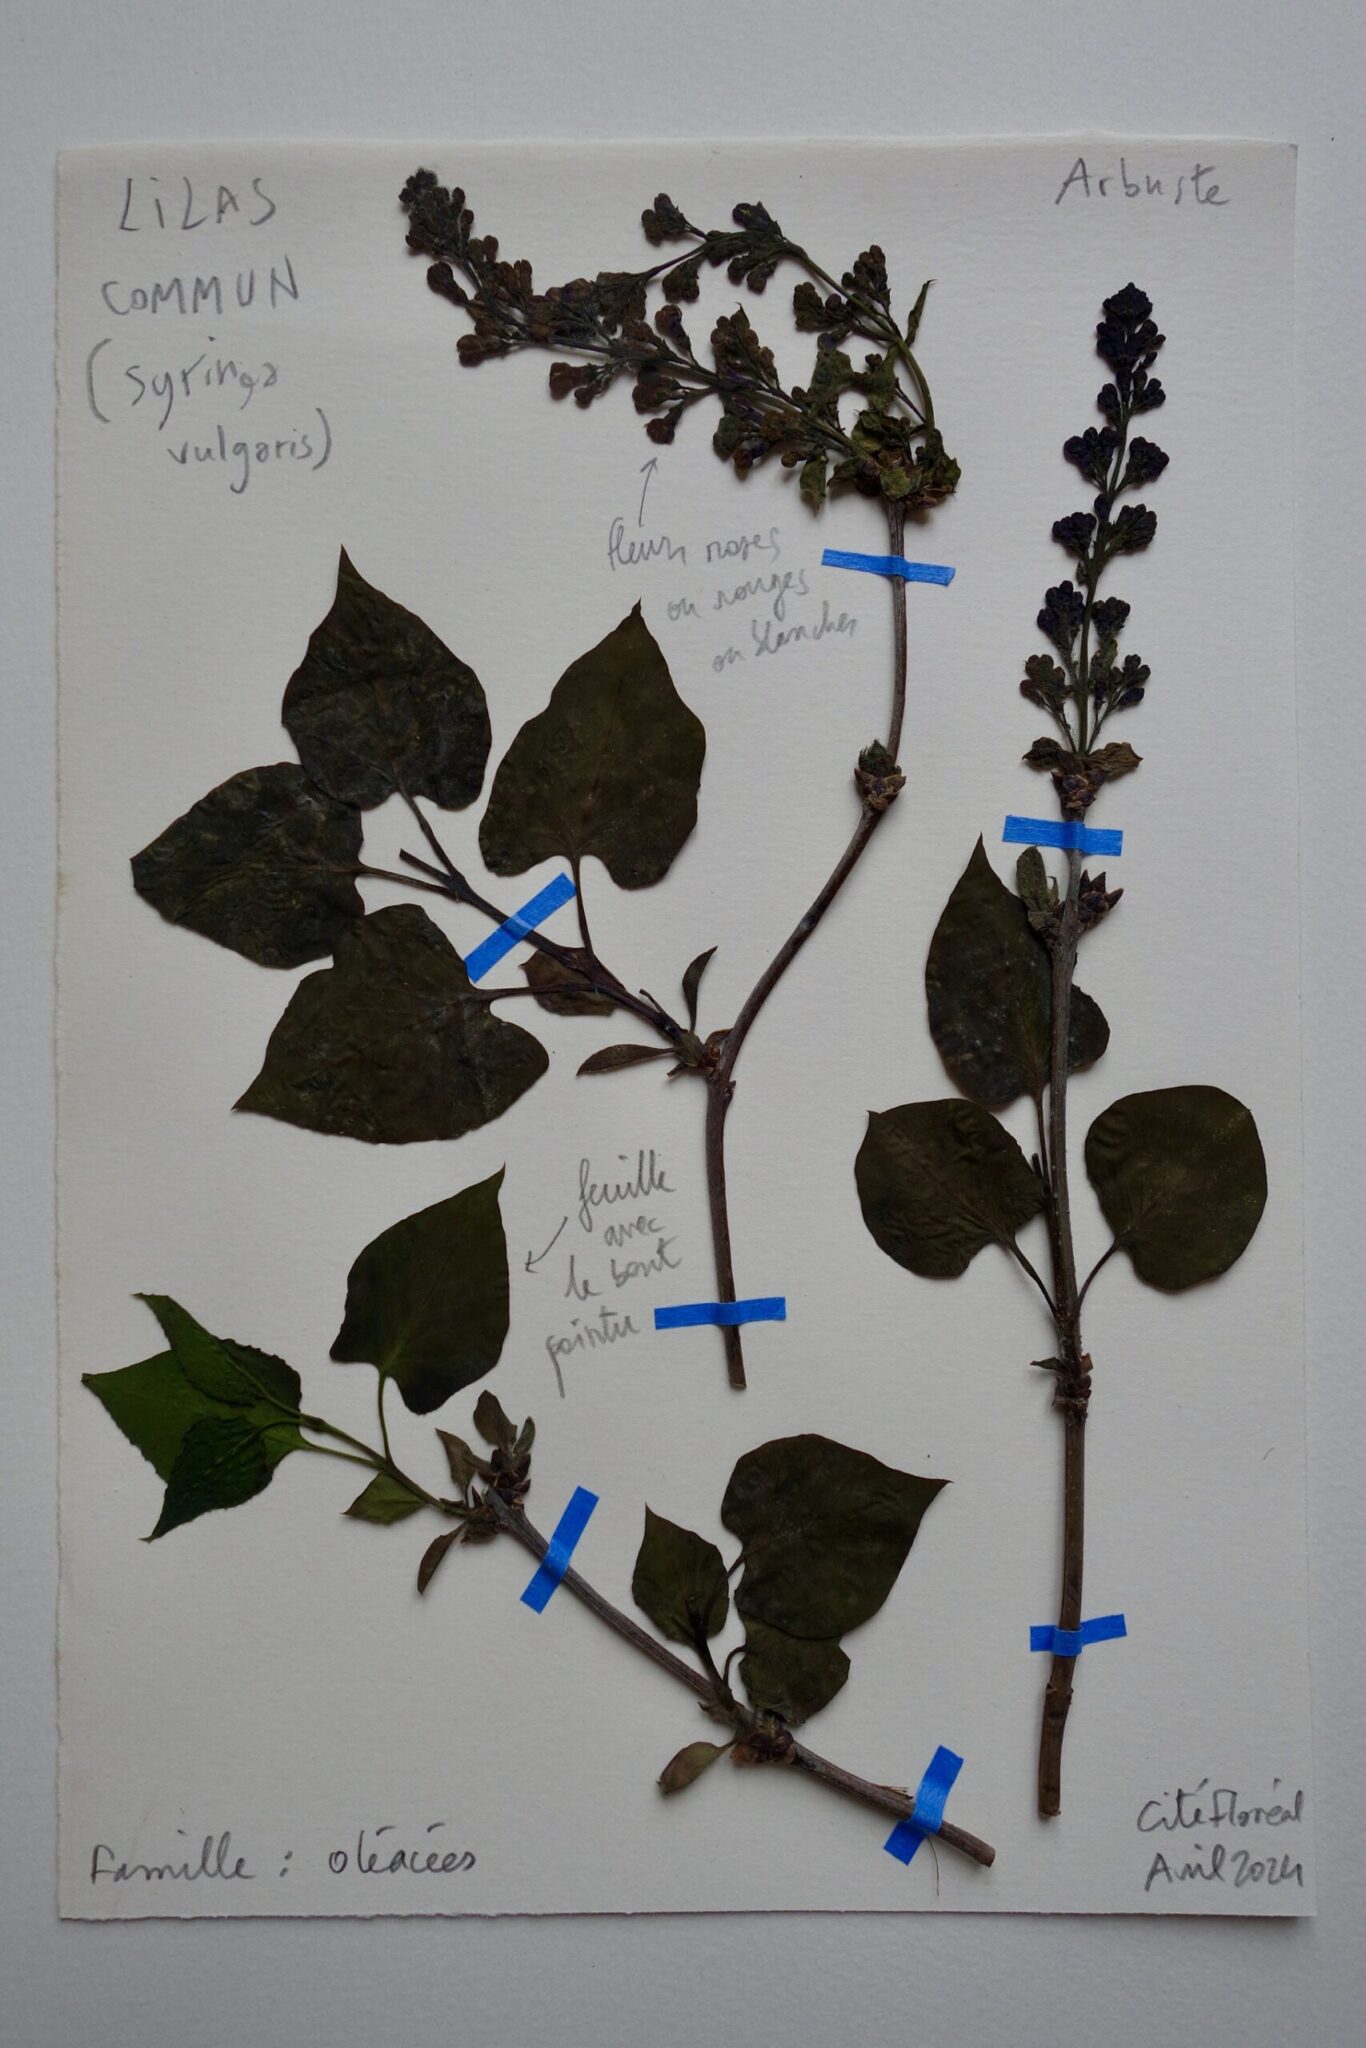 LiLAS
COMMUN
(Syringa
vulgaris)
Arbuste
fleurs roses
ou rouges
ou blanches
feuille
avec
le bout
pointu
Famille : oléacées
Cité Floréal
Avril 2024